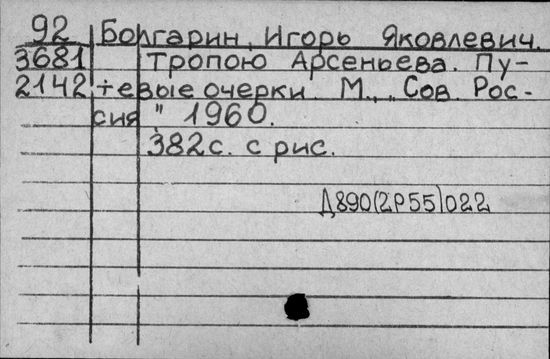 92 Болгарин, Игорь Яковлевич.
3681 Тропою Арсеньева. Пу-
2142 тевые очерки. М., „Сов. Рос-
сия" 1960.
382 с. с рис.
Д890(2Р55)022